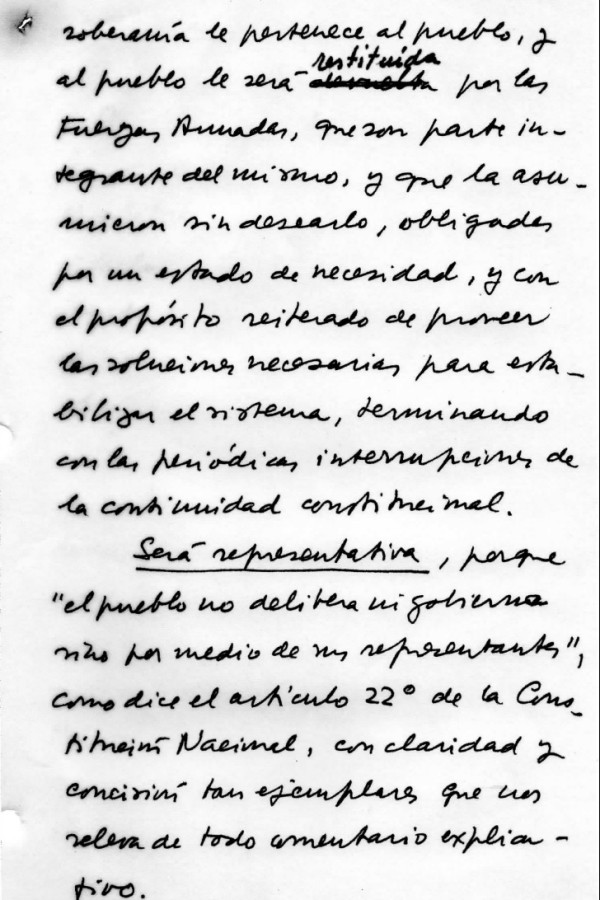 soberanía le pertenece al pueblo, y
restituída
al pueblo le será devuelta por las
Fuerzas Armadas, que son parte in-
tegrante del mismo, y que la asu-
mieron sin desearlo, obligadas
por un estado de necesidad, y con
el propósito reiterado de proveer
las soluciones necesarias para esta-
bilizar el sistema, terminando
con las periódicas interrupciones de
la continuidad constitucional.
Será representativa, porque
"el pueblo no delibera ni gobierna
sino por medio de sus representantes",
como dice el artículo 22º de la Cons-
titución Nacional, con claridad y
concisión tan ejemplares que nos
releva de todo comentario explica-
tivo.